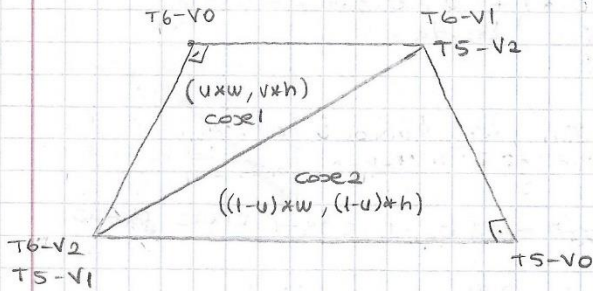 T6-V0
T6-V1
T5-V2
(u*w, v*h)
case1
case2
((1-u)*w, (1-u)*h)
T6-V2
T5-V1
T5-V0